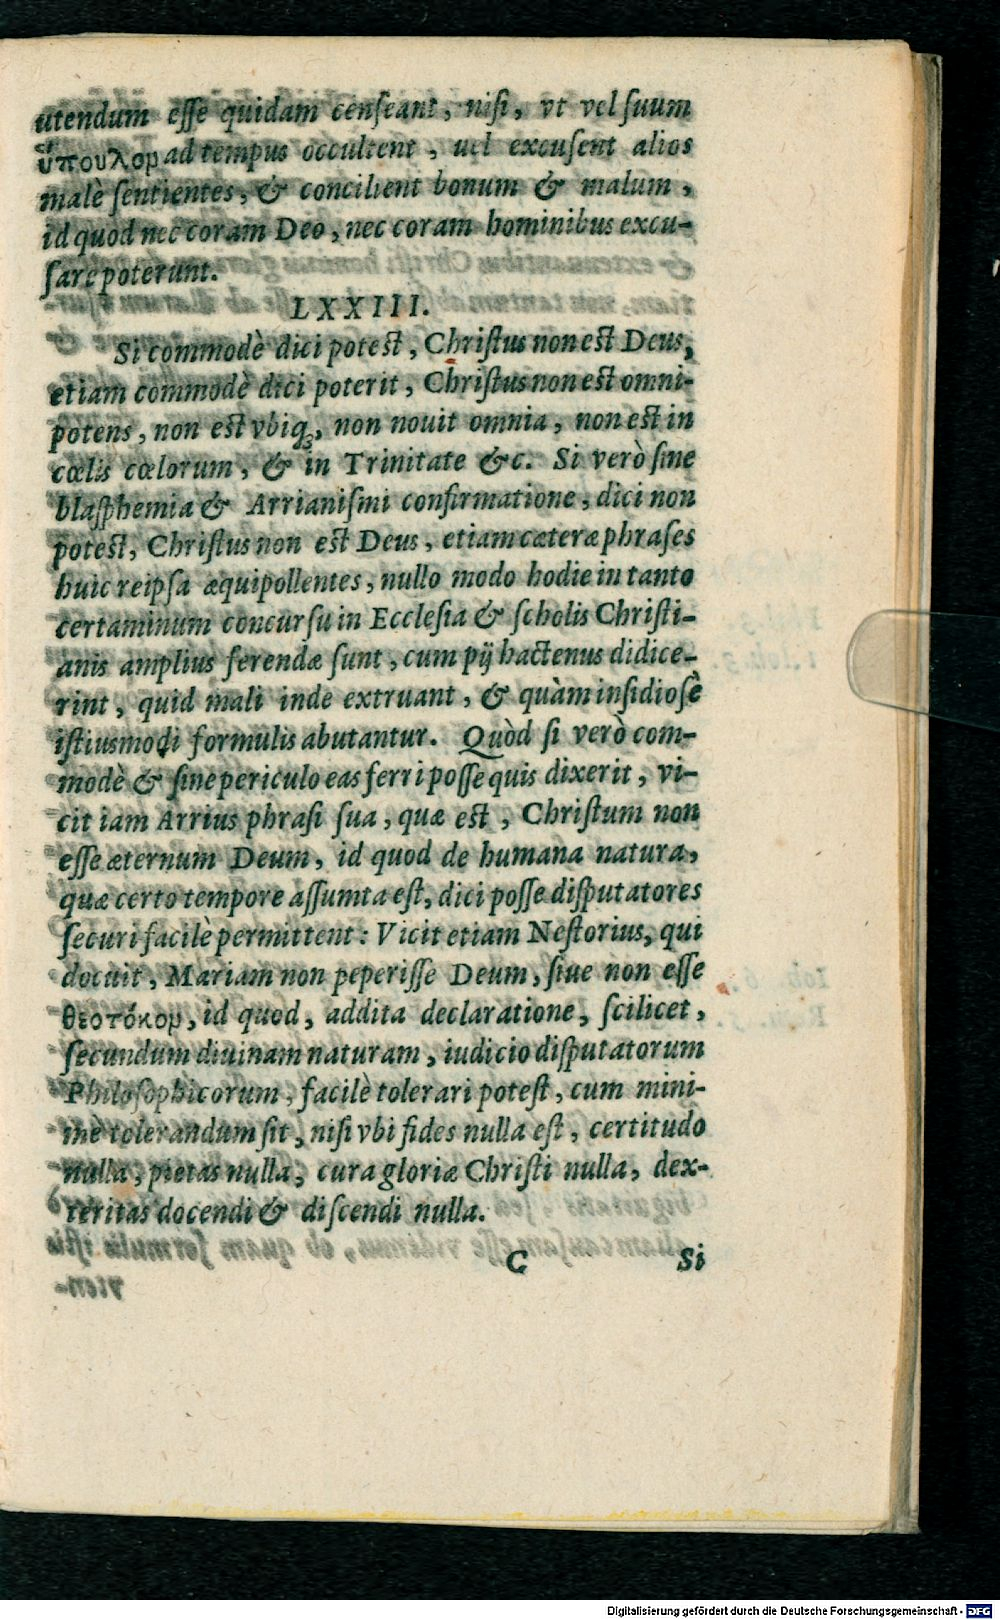 utendum esse quidam censeant, nisi, vt vel suum
ὕπουλον ad tempus occultent, uel excusent alios
malè sentientes, & concilient bonum & malum,
id quod nec coram Deo, nec coram hominibus excu-
sare poterunt.
LXXIII.
Si commodè dici potest, Christus non est Deus,
etiam commodè dici poterit, Christus non est omni-
potens, non est vbiq;, non nouit omnia, non est in
cœlis cœlorum, & in Trinitate &c. Si verò sine
blasphemia & Arrianismi confirmatione, dici non
potest, Christus non est Deus, etiam cæteræ phrases
huic reipsa æquipollentes, nullo modo hodie in tanto
certaminum concursu in Ecclesia & scholis Christi-
anis amplius ferendæ sunt, cum pij hactenus didice-
rint, quid mali inde extruant, & quàm insidiosè
istiusmodi formulis abutantur. Quòd si verò com-
modè & sine periculo eas ferri posse quis dixerit, vi-
cit iam Arrius phrasi sua, quæ est, Christum non
esse æternum Deum, id quod de humana natura,
quæ certo tempore assumta est, dici posse disputatores
securi facilè permittent: Vicit etiam Nestorius, qui
docuit, Mariam non peperisse Deum, siue non esse
θεοτόκον, id quod, addita declaratione, scilicet,
secundum diuinam naturam, iudicio disputatorum
Philosophicorum, facilè tolerari potest, cum mini-
mè tolerandum sit, nisi vbi fides nulla est, certitudo
nulla, pietas nulla, cura gloriæ Christi nulla, dex-
teritas docendi & discendi nulla.
C Si
Digitalisierung gefördert durch die Deutsche Forschungsgemeinschaft - DFG